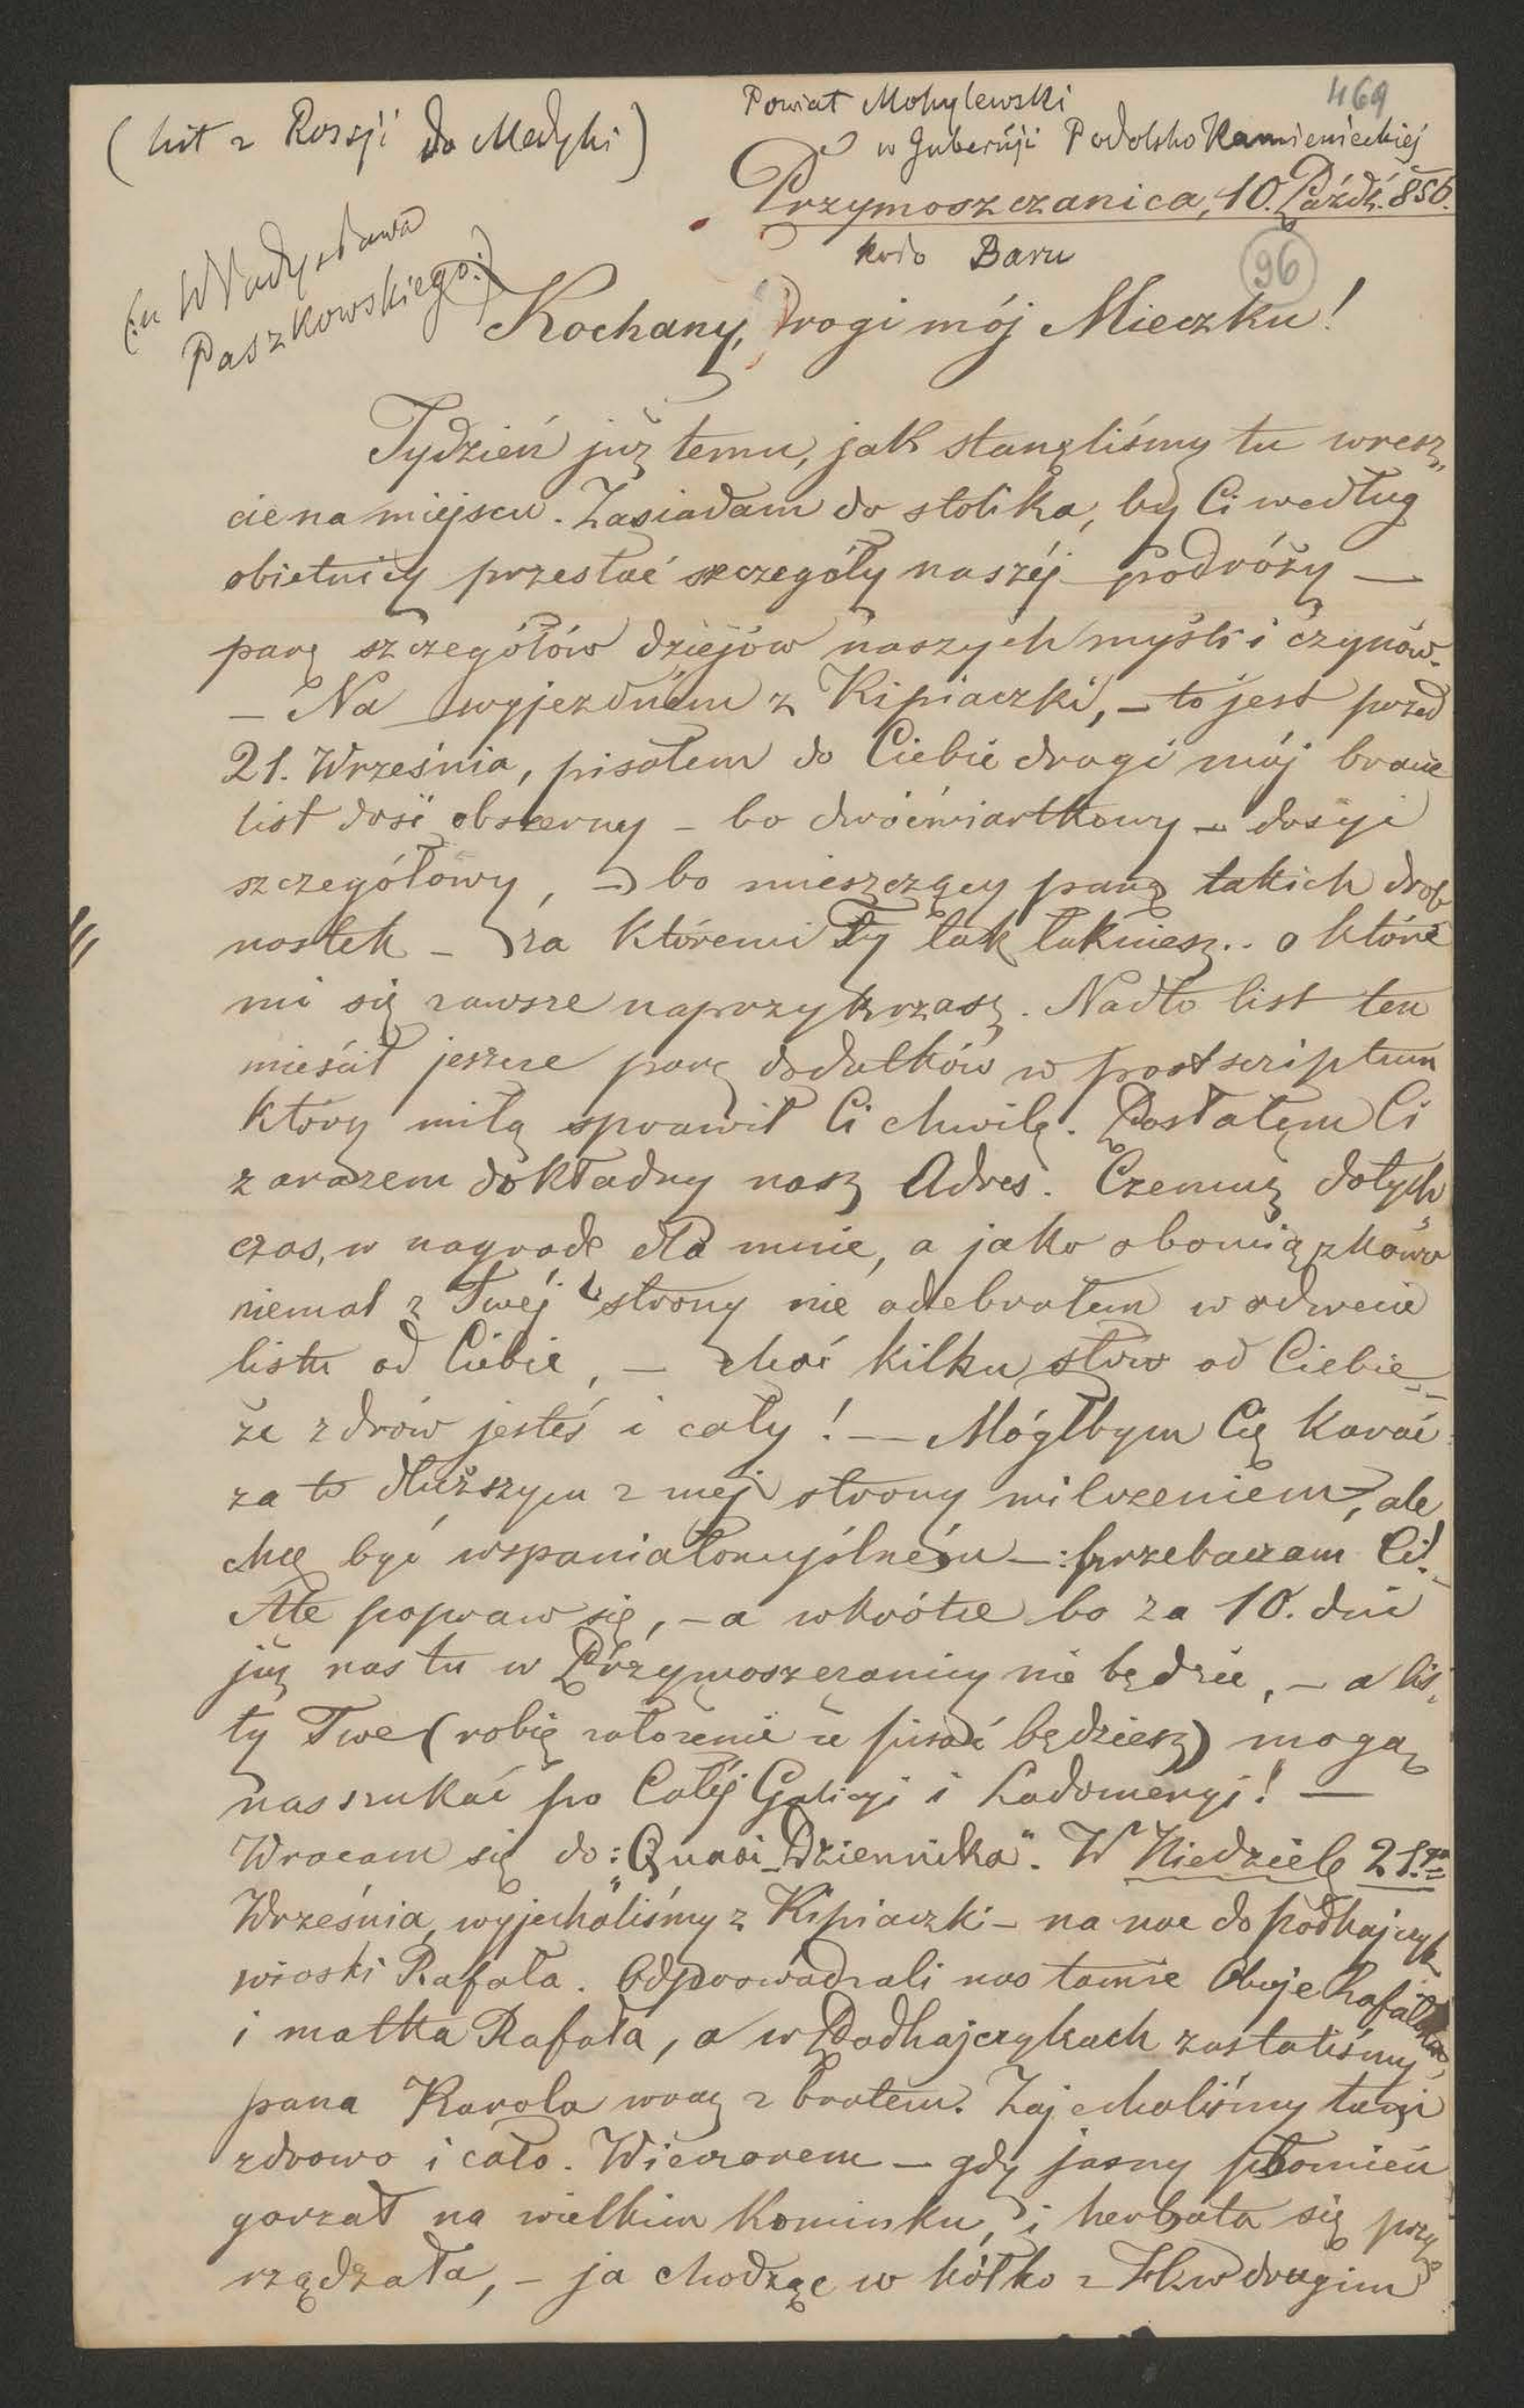 469
(list z Rossji do Medyki)
Powiat Mohylewski
w Guberńji Podolsko Kamienieckiej
Przymoszczanica, 10. Paźdź. 856.
koło Baru
96
(:u Władysława
Paszkowskiego:)
Kochany, Drogi mój Mieczku!
Tydzień już temu, jak stanęliśmy tu wresz„
cie na miejscu. Zasiadam do stolika, by Ci według
obietnicy przesłać szczegóły naszéj podróży —
parę szczegółów dziejów naszych myśli i czynów.
— Na wyjezdném z Kipiaczki, — to jest przed
21. Września, pisałem do Ciebie drogi mój bracie
list dość obszerny — bo dwóćwiartkowy — dosyć
szczegółowy, — bo mieszczący parę takich drob
nostek — za któremi Ty tak łakniesz.. o które
mi się zawsze naprzykrzasz. Nadto list ten
mieścił jeszcze parę dodatków w postscriptum
który miłą sprawił Ci chwilę. Posłałem Ci
zarazem dokładny nasz Adres. Czemuż dotych„
czas, w nagrodę dla mnie, a jako obowiązkowo
niemal z Twéj strony nie odebrałem w odwecie
listu od Ciebie, — choć kilku słów od Ciebie
że zdrów jesteś i cały! — Mógłbym Cię karać
za to dłuższym z mej strony milczeniem, ale
chcę być wspaniałomyślném —: przebaczam Ci!
Ale popraw się, — a wkrótce bo za 10. dni
już nas tu w Przymoszczanicy nie będzie, — a lis„
ty Twe (robię założenie że pisać będziesz) mogą
nas szukać po Całéj Galicyi i Lodomeryi! —
Wracam się do: „Quasi-Dziennika". W Niedzielę 21.go
Września, wyjechaliśmy z Kipiaczki — na noc do Podhajczyk
wioski Rafała. Odprowadzali nas tamże Oboje Rafałowie,
i matka Rafała, a w Podhajczykach zastaliśmy
pana Karola wraz z bratem. Zajechaliśmy tamże
zdrowo i cało. Wieczorem — gdy jasny płomień
gorzał na wielkim kominku, i herbata się przy„
rządzała, — ja chodząc w kółko z w drugim